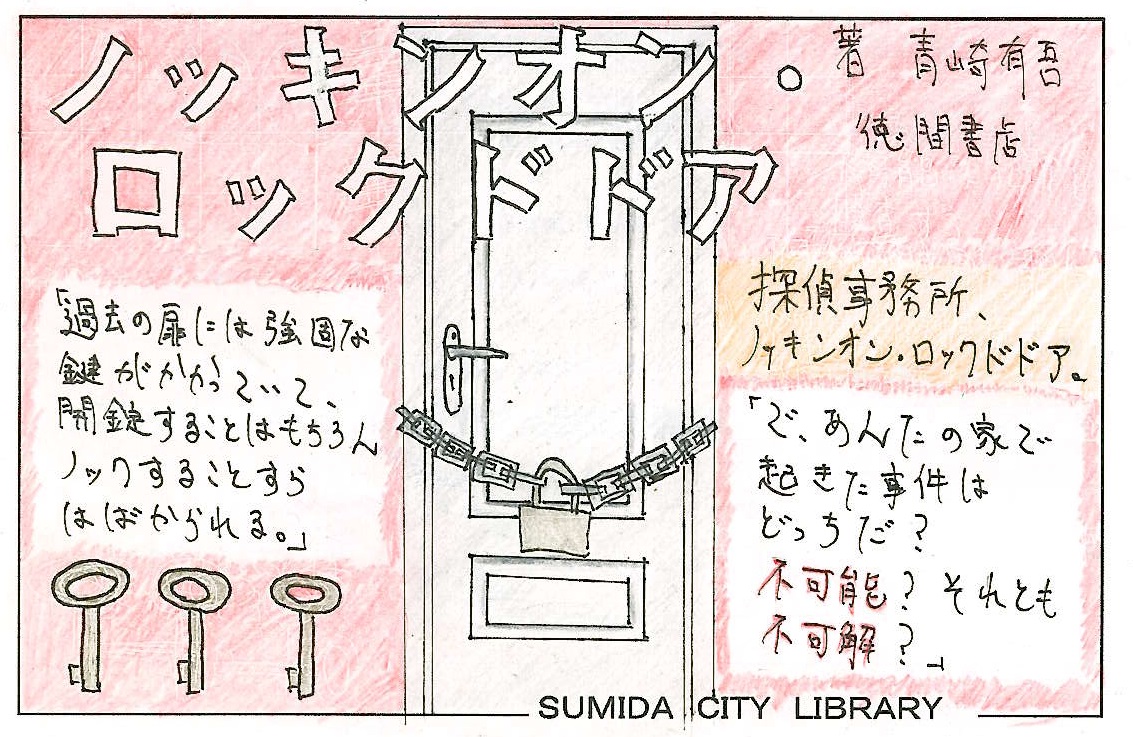 ノッキンオン
ロックドドア
著 青崎有吾
徳間書店
「過去の扉には強固な
鍵がかかっていて、
開錠することはもちろん
ノックすることすら
はばかられる。」
探偵事務所、
ノッキンオン・ロックドドア。
「で、あんたの家で
起きた事件は
どっちだ？
不可能？それとも
不可解？」
SUMIDA CITY LIBRARY